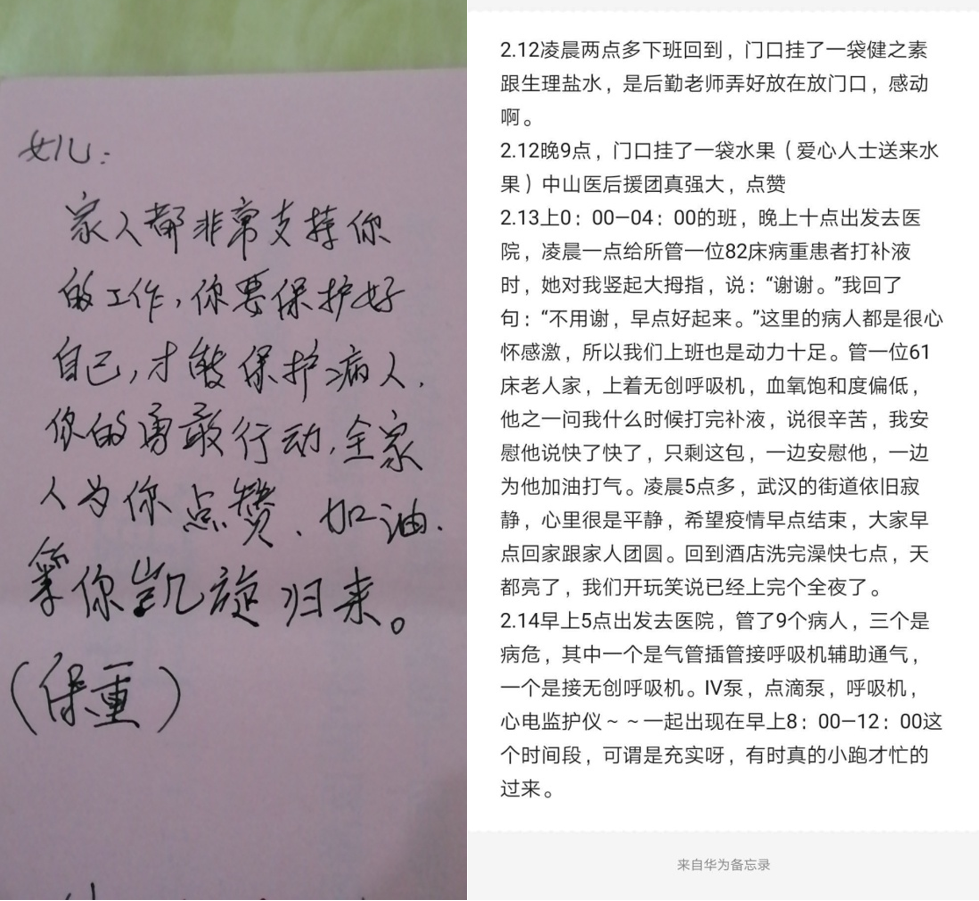 女儿：
家人都非常支持你
的工作，你要保护好
自己，才能保护病人，
你的勇敢行动，全家
人为你点赞、加油、
等你凯旋归来。
（保重）
2.12凌晨两点多下班回到，门口挂了一袋健之素
跟生理盐水，是后勤老师弄好放在放门口，感动
啊。
2.12晚9点，门口挂了一袋水果（爱心人士送来水
果）中山医后援团真强大，点赞
2.13上0：00—04：00的班，晚上十点出发去医
院，凌晨一点给所管一位82床病重患者打补液
时，她对我竖起大拇指，说：“谢谢。”我回了
句：“不用谢，早点好起来。”这里的病人都是很心
怀感激，所以我们上班也是动力十足。管一位61
床老人家，上着无创呼吸机，血氧饱和度偏低，
他之一问我什么时候打完补液，说很辛苦，我安
慰他说快了快了，只剩这包，一边安慰他，一边
为他加油打气。凌晨5点多，武汉的街道依旧寂
静，心里很是平静，希望疫情早点结束，大家早
点回家跟家人团圆。回到酒店洗完澡快七点，天
都亮了，我们开玩笑说已经上完个全夜了。
2.14早上5点出发去医院，管了9个病人，三个是
病危，其中一个是气管插管接呼吸机辅助通气，
一个是接无创呼吸机。IV泵，点滴泵，呼吸机，
心电监护仪～～一起出现在早上8：00—12：00这
个时间段，可谓是充实呀，有时真的小跑才忙的
过来。
来自华为备忘录